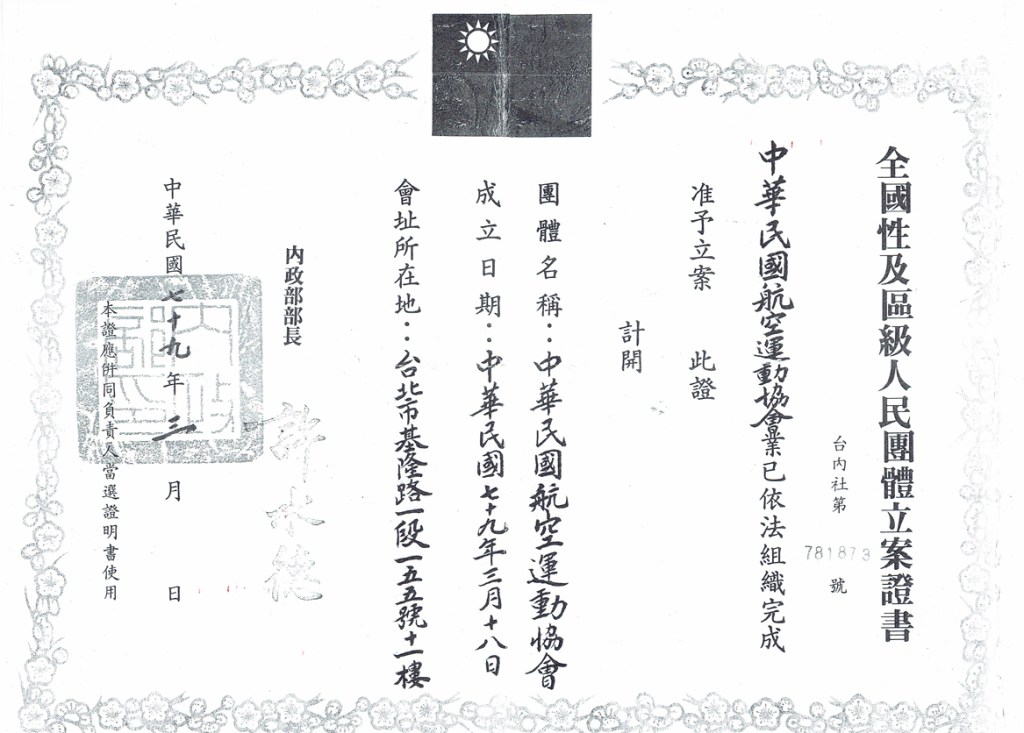 全國性及區級人民團體立案證書
台內社第
781873
號
中華民國航空運動協會業已依法組織完成
准予立案　此證
計開
團體名稱：中華民國航空運動協會
成立日期：中華民國七十九年三月十八日
會址所在地：台北市基隆路一段一五五號十一樓
內政部部長
許水德
中華民國七十九年三月　日
本證應併同負責人當選證明書使用